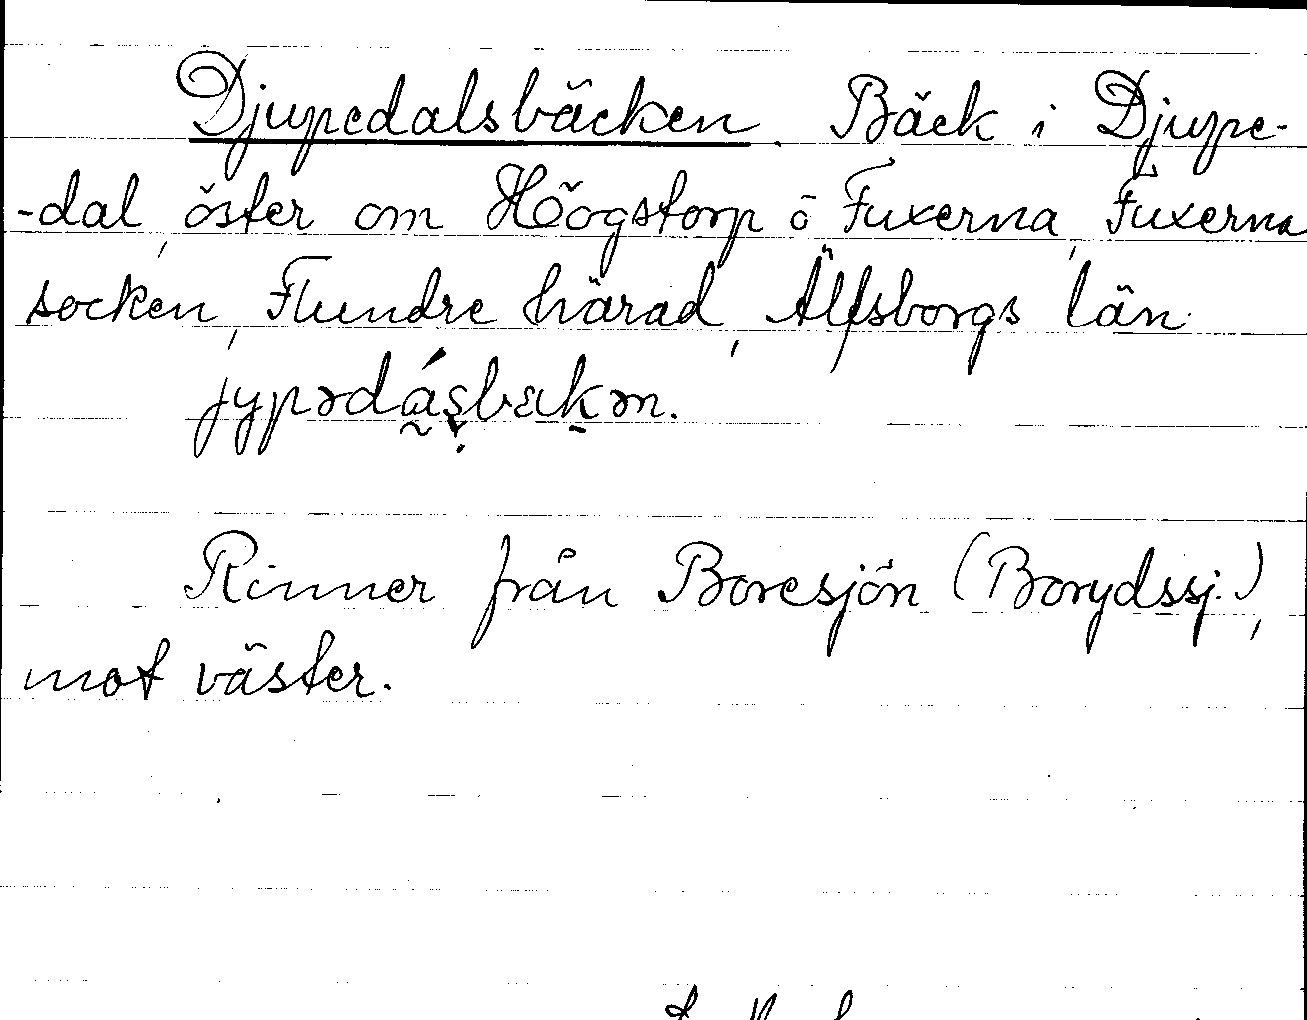 Djupedalsbäcken. Bäck i Djupe-
-dal, öster om Högstorp ö Fuxerna, Fuxerna
socken, Flundre härad, Älfsborgs län.
jypədásbakən.
Rinner från Boresjön (Borydssj.),
mot väster.